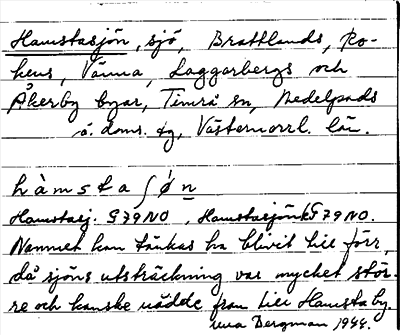 Hamstasjön, sjö, Brattlands, Ro-
kens, Vänna, Laggarbergs och
Åkerby byar, Timrå sn, Medelpads
ö. doms. tg, Västernorrl. län.
hàmstaʃǿn
Hamstasj. G79NO, Hamstasjön G79NO.
Namnet kan tänkas ha blivit till förr,
då sjöns utsträckning var mycket stör-
re och kanske nådde fram till Hamsta by.
Bergman 1944.